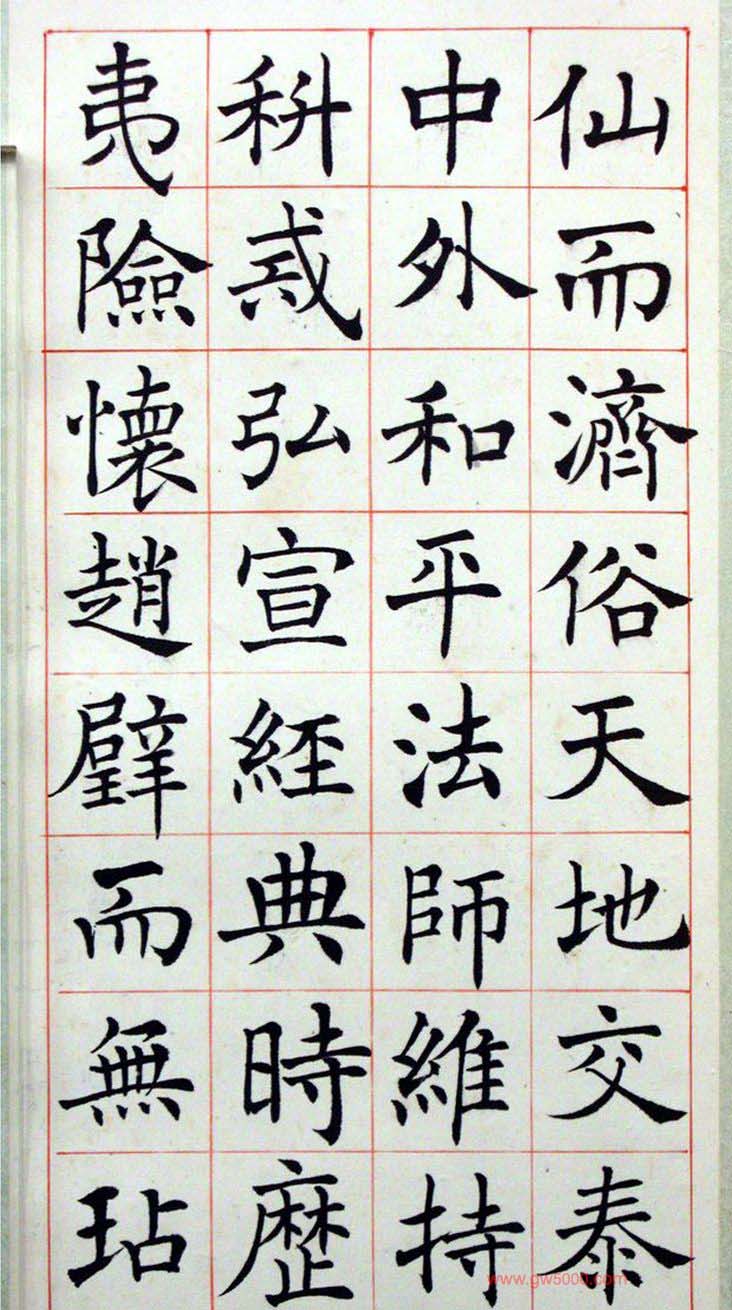 仙而濟俗天地交泰
中外和平法師維持
科戒弘宣經典時歷
夷險懷趙璧而無玷
www.gw5000.com